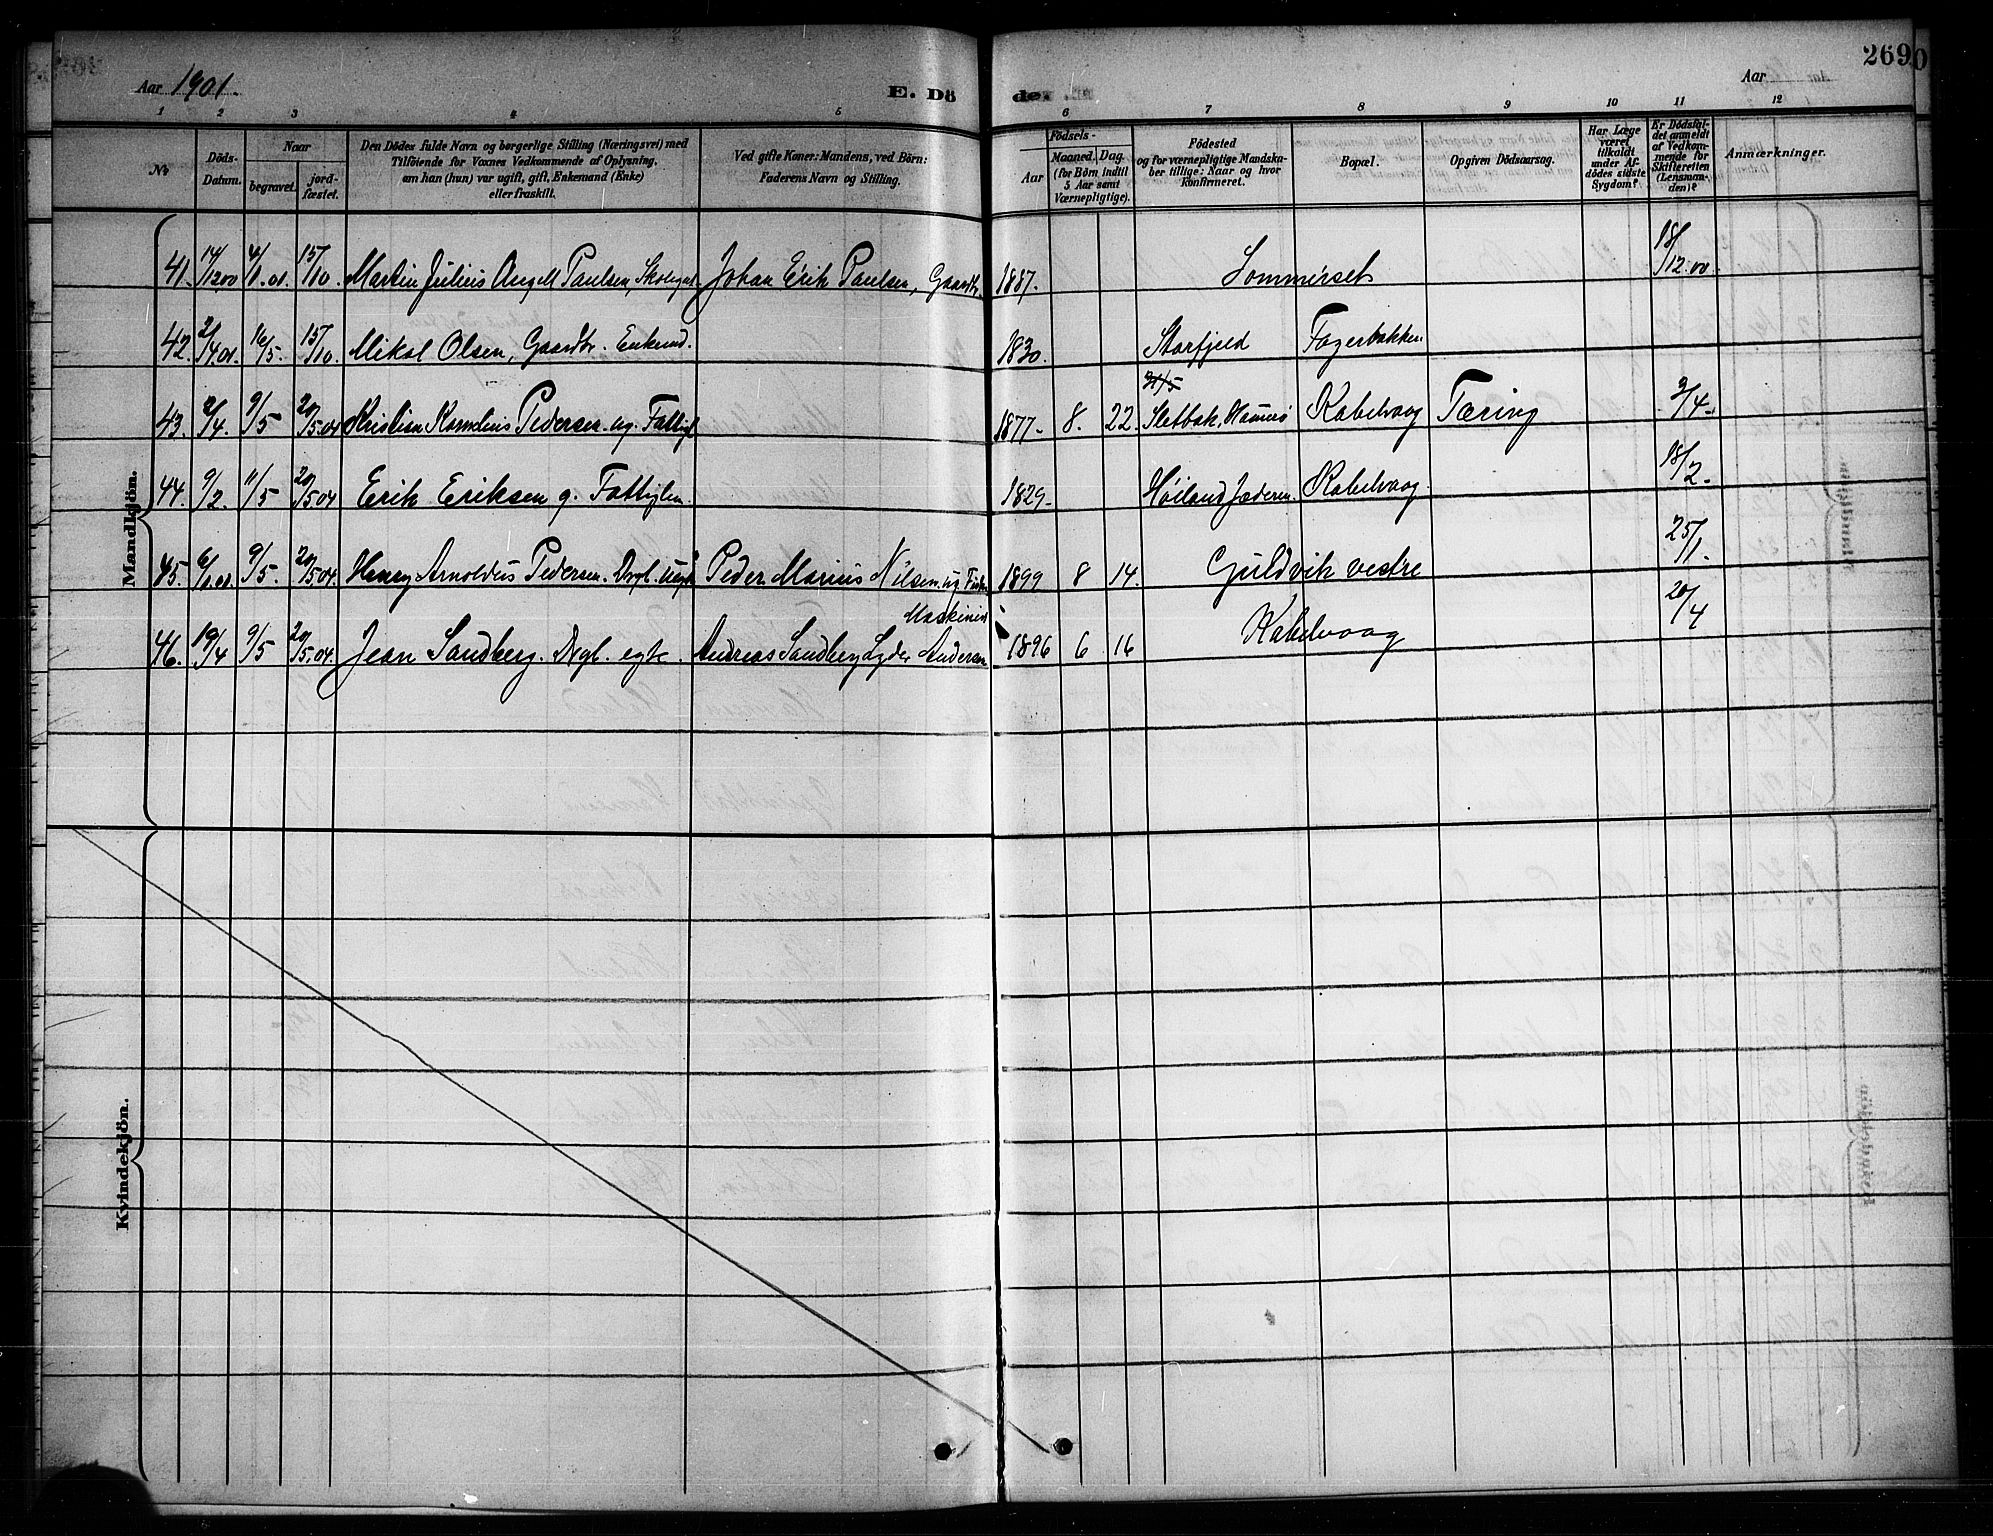 Aar 1901.
E. Dö
de.
Aar
269
1 2 3 4 5 6 7 8 9 10 11 12
No
Döds-Datum.
Naar
begravet.
jordfæstet.
Den Dödes fulde Navn og borgerlige Stilling (Næringsvei) med
Tilföiende for Voxnes Vedkommende af Oplysning,
om han (hun) var ugift, gift, Enkemand (Enke)
eller fraskilt.
Ved gifte Koner: Mandens, ved Börn:
Faderens Navn og Stilling.
Födsels-
Aar
Maaned. Dag.
(for Börn indtil
5 Aar samt
Værnepligtige).
Födested
og for værnepligtige Mandska-
ber tillige: Naar og hvor
konfirmeret.
Bopæl.
Opgiven Dödsaarsag.
Har Læge
været
tilkaldt
under Af-
dödes sidste
Sygdom?
Er Dödsfal-
det anmeldt
af Vedkom-
mende for
Skifteretten
(Lensman-
den)?
Anmærkninger.
Mandkjön.
41. 14/12 00 4/1.01. 15/10. Martin Julius Angell Paulsen, Johan Erik Paulsen, Gaardbr. 1887. Sommerset 18/12.00.
42. 2/4.01. 16/5. 15/10. Mikal Olsen, Gaardbr. Enkemd. 1830. Storfjeld Fagerbakken
43. 2/4. 9/5 20/5.04 Kristian Kornelius Pedersen ug. Fattigl 1877. 8. 22. Sletbak, Tæring 3/4.
Kabelvaag
44. 9/2. 11/5 20/5.04 Erik Eriksen g. Fattiglem. 1829. Høiland Jæderen. Kabelvaag. 18/2.
45. 6/1.01. 9/5. 20/5.04. Henry Arnoldus Pedersen. Peder Marius Nilsen, ug 1899 8 14. Guldvik vestre 25/1.
46. 19/4 9/5 20/5.04. Jean Sandberg. Dgl. egte. Andreas Sandberg Lyder Andersen 1896 6 16 Kabelvaag 20/4
Maskinist
Kvindekjön.